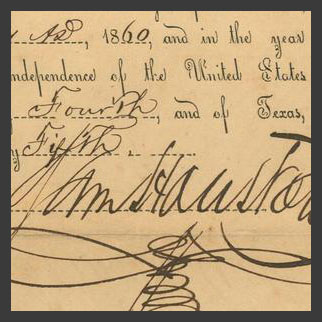 1860, and in the year
ndependence of the United States
Fourth, and of Texas,
Fifth.
Sam Housto